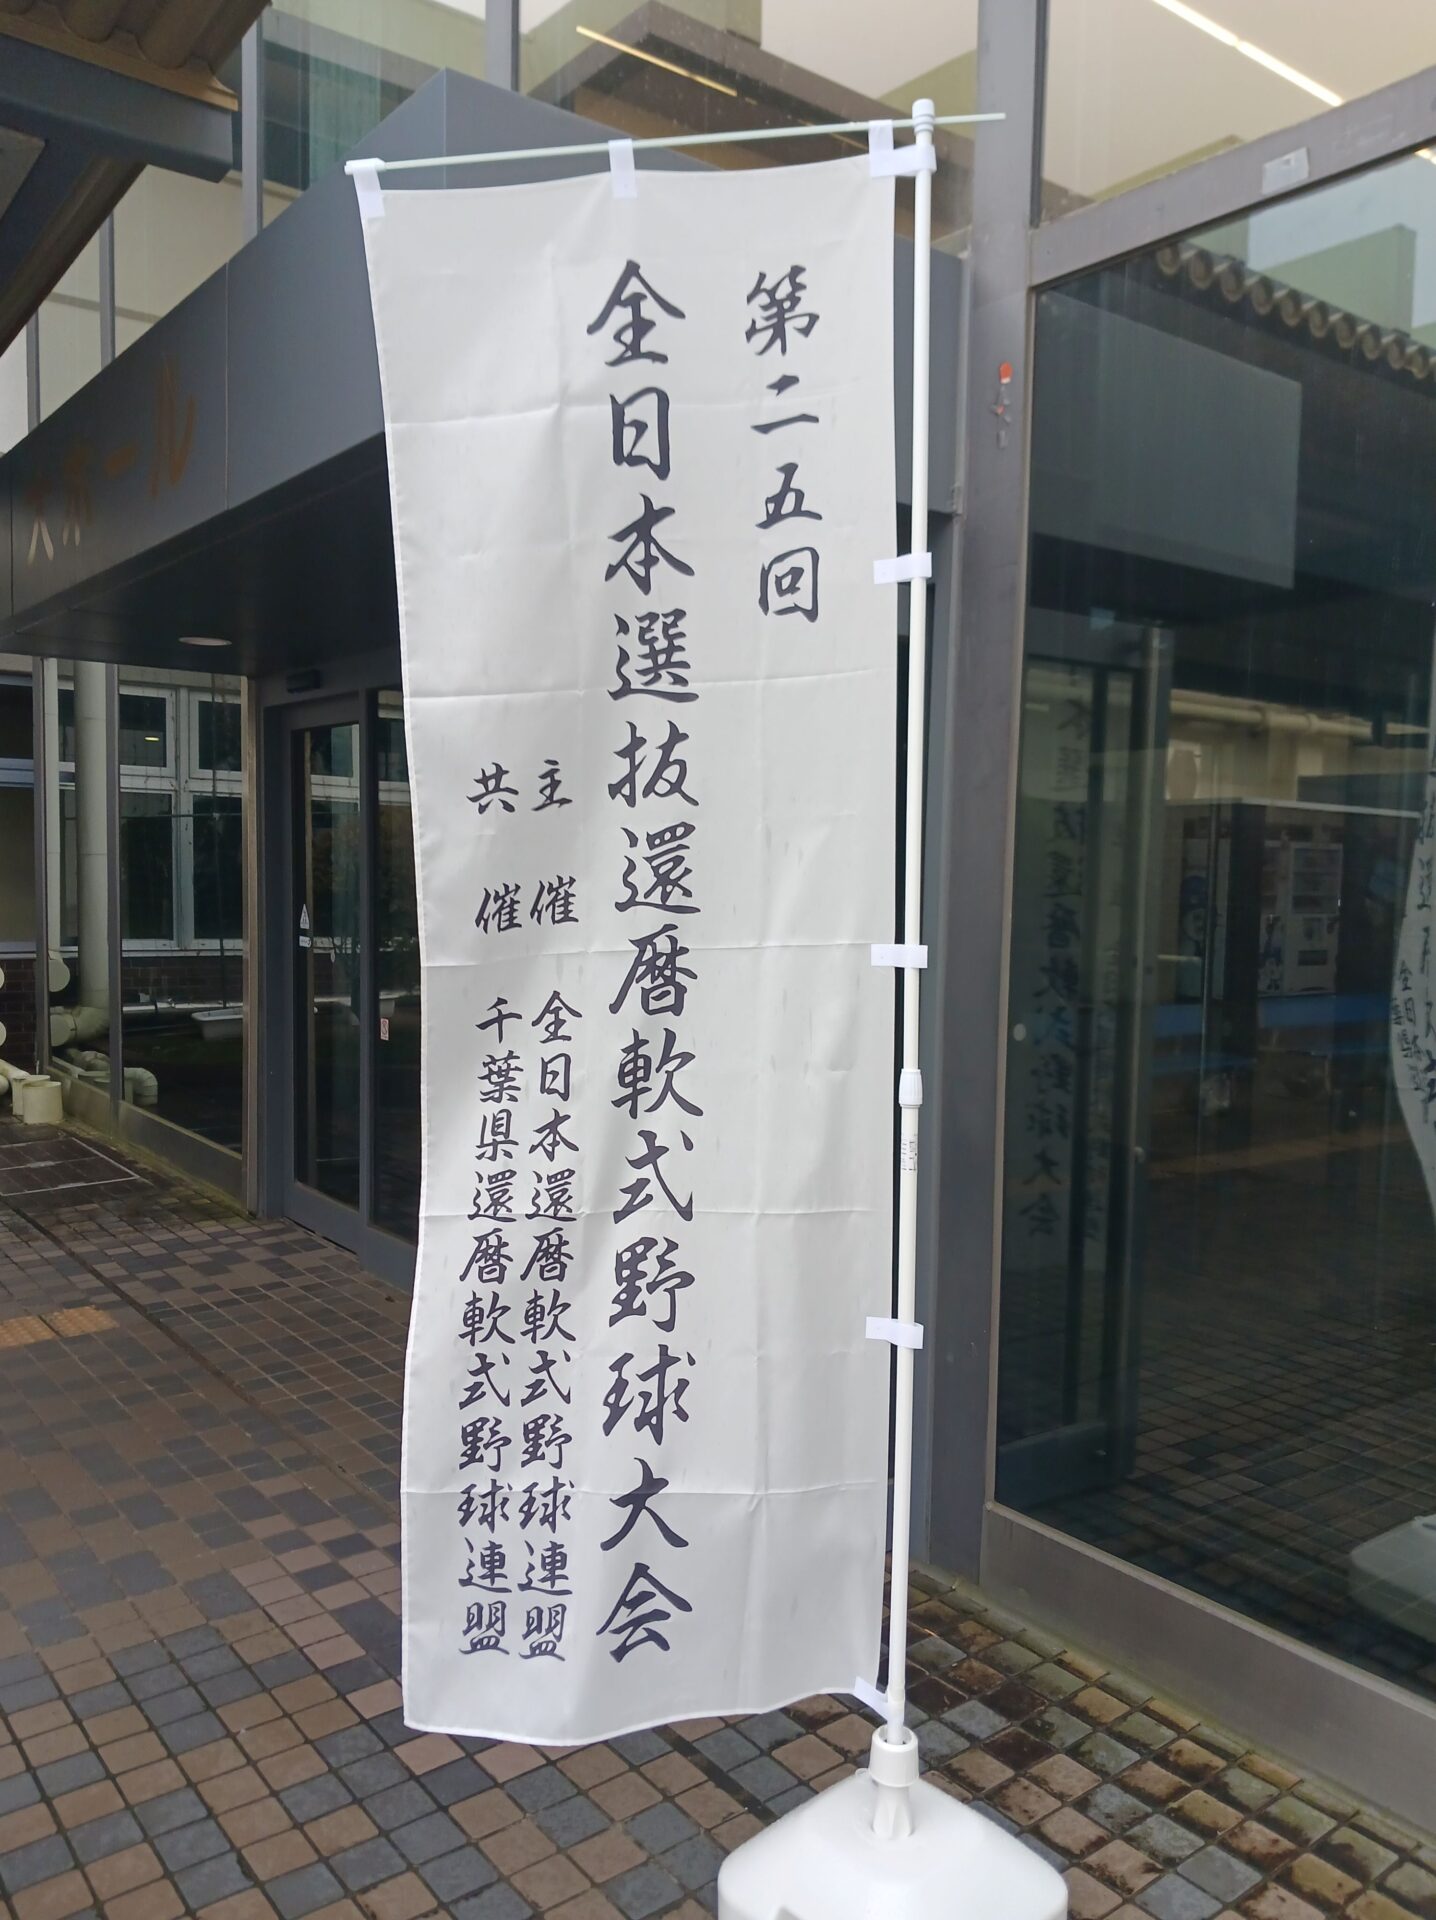 第二五回
全日本選抜還暦軟式野球大会
主催 全日本還暦軟式野球連盟
共催 千葉県還暦軟式野球連盟
大ホール